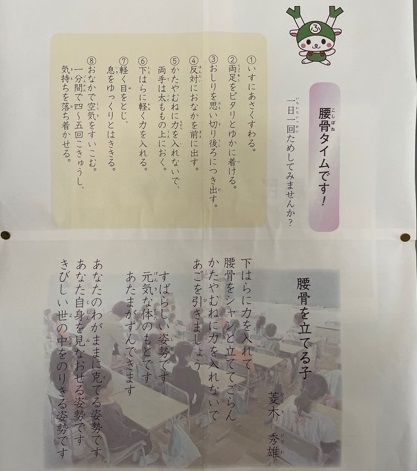 腰骨タイムです！
一日一回ためしてみませんか？
①いすにあさくすわる。
②両足をピタリとゆかに着ける。
③おしりを思い切り後ろにつき出す。
④反対におなかを前に出す。
⑤かたやむねに力を入れないで、
両手は太ももの上におく。
⑥下はらに軽く力を入れる。
⑦軽く目をとじ、
息をゆっくりとはききる。
⑧おなかで空気をすいこむ。
一分間で四～五回こきゅうし、
気持ちを落ち着かせる。
腰骨を立てる子
菱木 秀雄
下はらに力を入れて、
腰骨をシャンと立ててごらん
かたやむねに力を入れないで
あごを引きましょう
すばらしい姿勢です
元気な体のもとです
あたまがすんできます
あなたのわがままに克てる姿勢です
あなた自身を見なおせる姿勢です
きびしい世の中をのりきる姿勢です